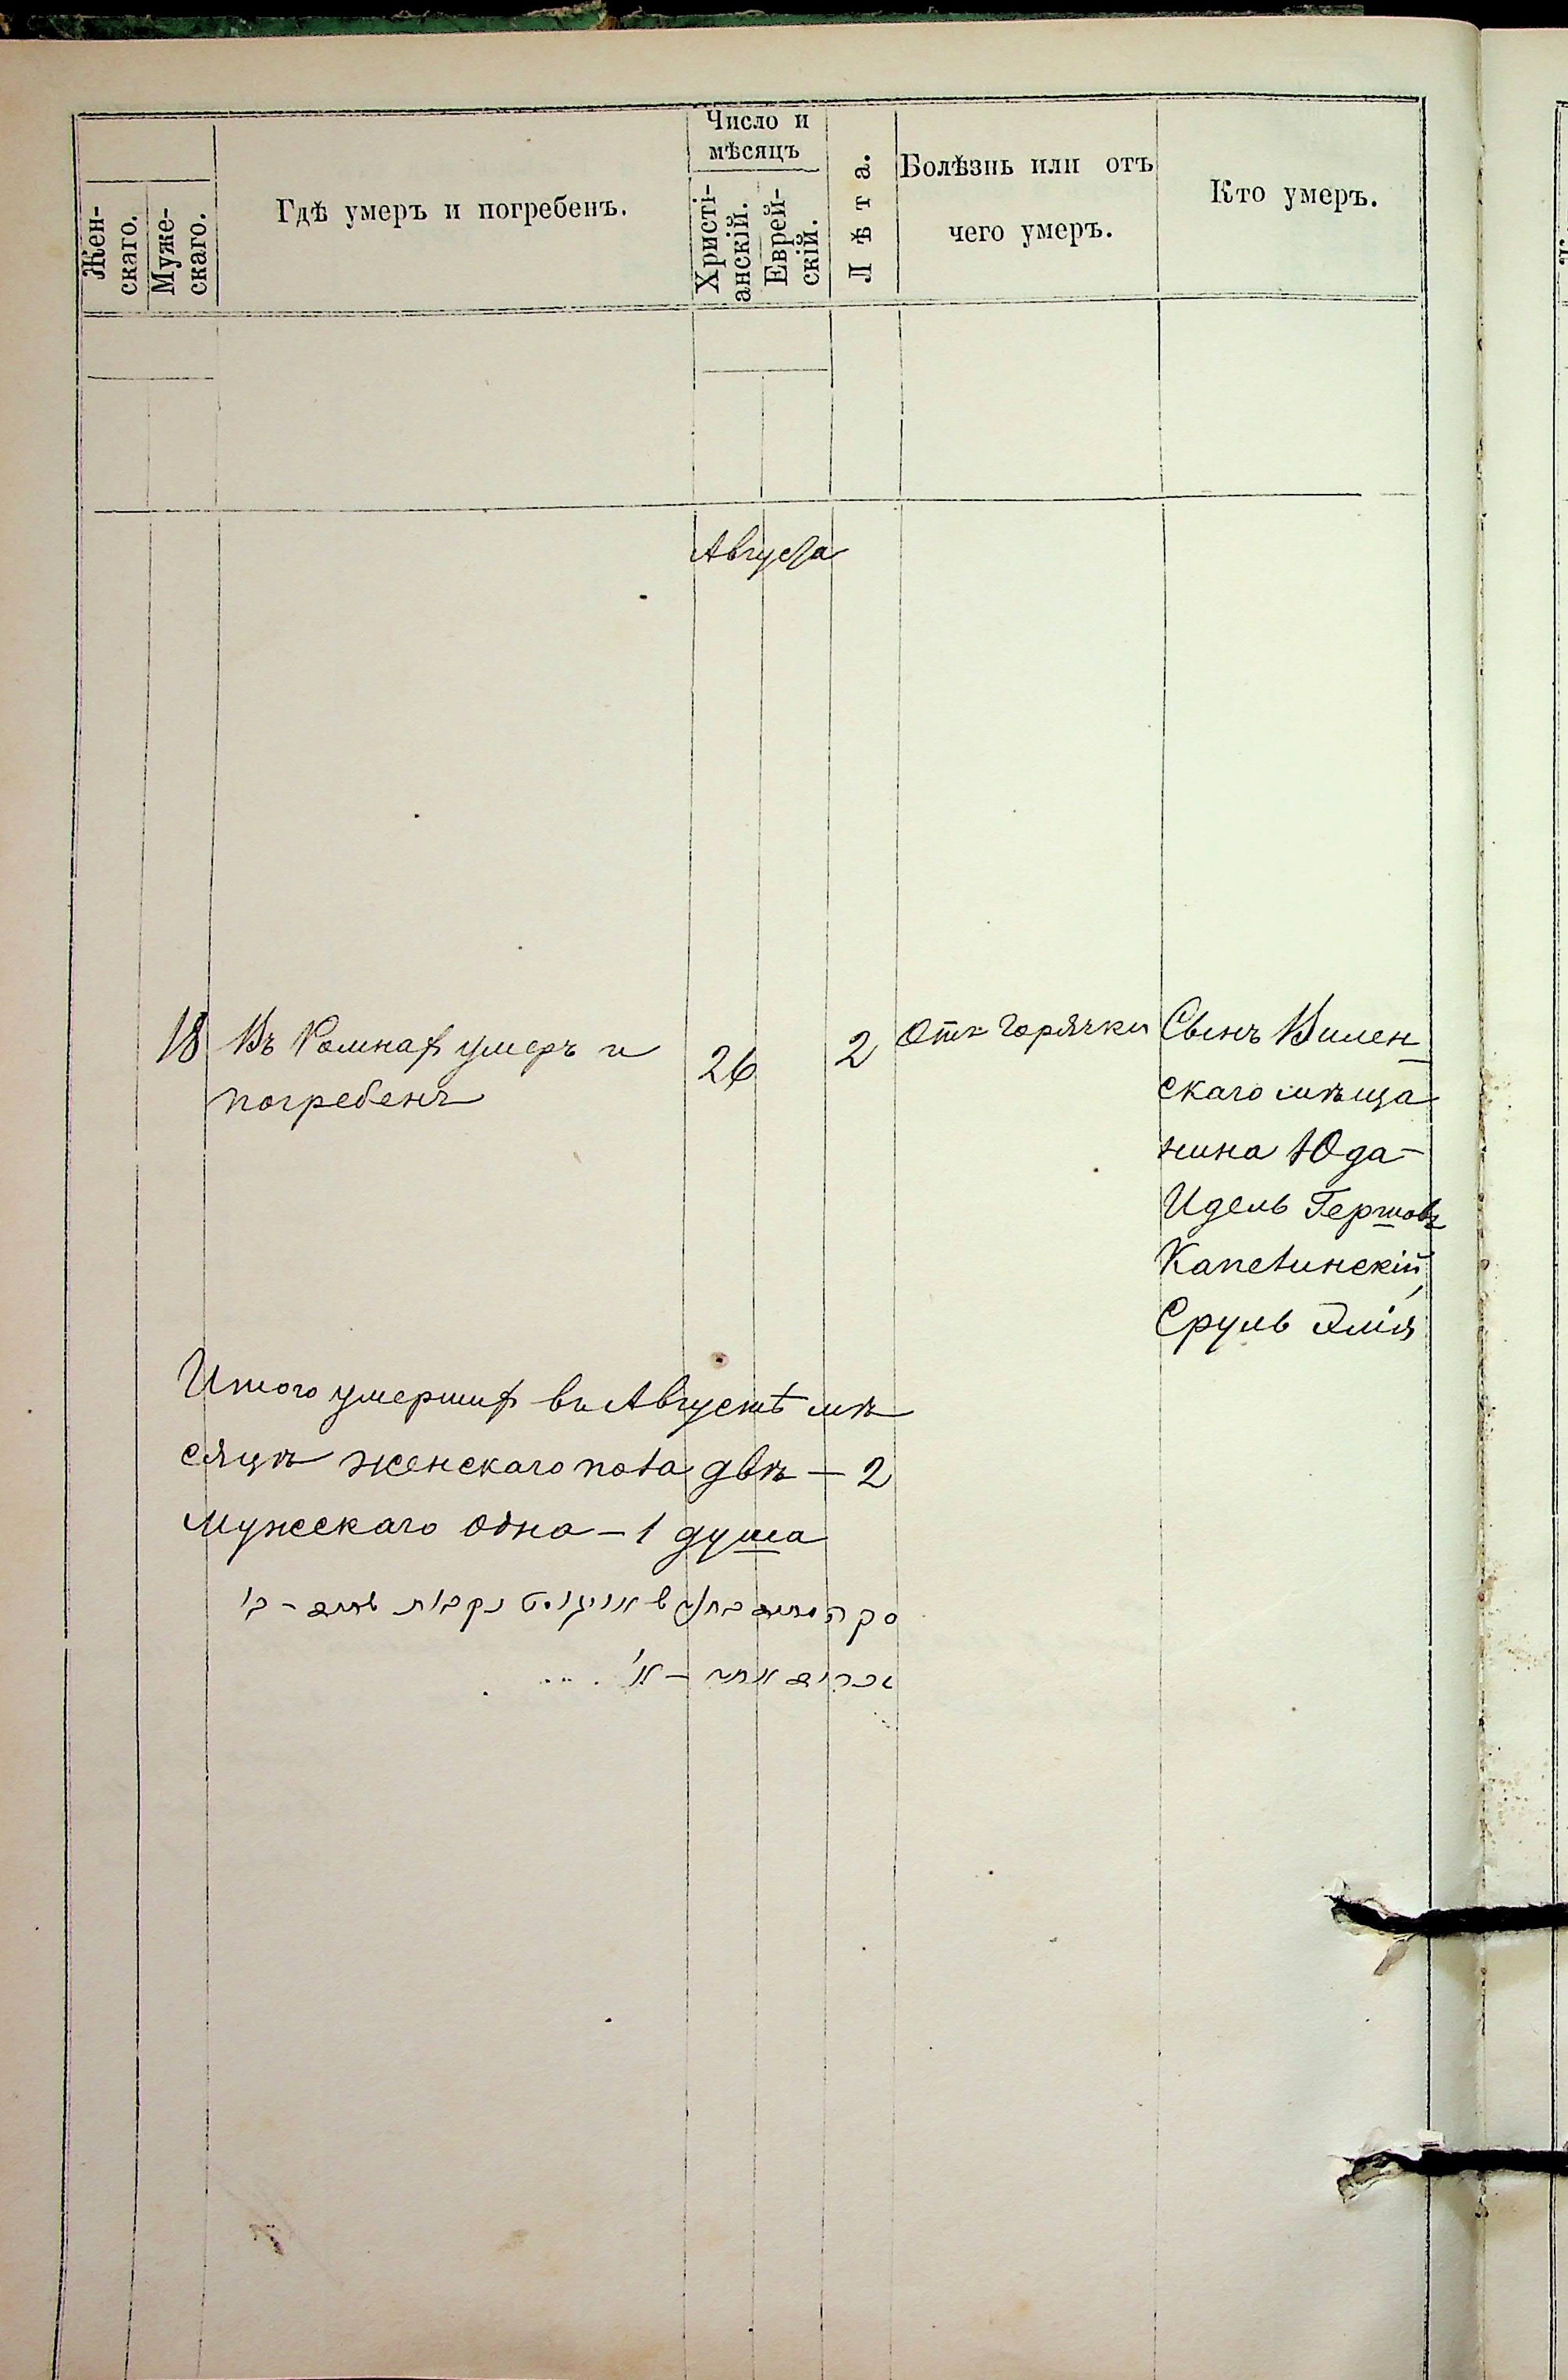 Жен-
скаго.
Муже-
скаго.
Гдѣ умеръ и погребенъ.
Число и
мѣсяцъ
Христі-
анскій.
Еврей-
скій.
Лѣта.
Болѣзнь или отъ
чего умеръ.
Кто умеръ.
Августа
18 Въ Ромнах умеръ и
погребенъ
26
2
Отъ горячки
Сынъ Вилен
скаго мѣща
нина Юда-
Идель Гершовъ
Капелинскій,
Сруль
Итого умерших въ Августѣ мѣ
сяцѣ женскаго пола двѣ — 2
мужскаго одна — 1 душа
סך המתים בחודש אויגוסט נקבות שתים - ב'
זכרים אחד - א'